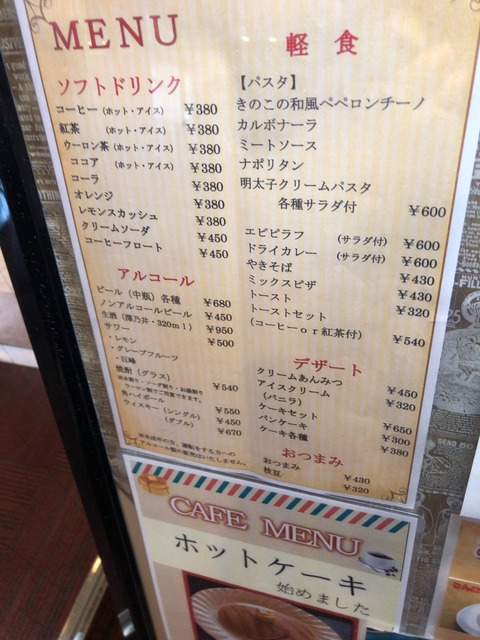 MENU
ソフトドリンク
コーヒー (ホット・アイス) ¥380
紅茶 (ホット・アイス) ¥380
ウーロン茶 (ホット・アイス) ¥380
ココア (ホット・アイス) ¥380
コーラ ¥380
オレンジ ¥380
レモンスカッシュ ¥380
クリームソーダ ¥450
コーヒーフロート ¥450
アルコール
ビール (中瓶) 各種 ¥680
ノンアルコールビール ¥450
生酒 (澤乃井・320ml) ¥950
サワー ¥500
・レモン
・グレープフルーツ
・巨峰
焼酎 (グラス) ¥540
角ハイボール ¥550
ウィスキー (シングル) ¥450
(ダブル) ¥670
軽食
【パスタ】
きのこの和風ペペロンチーノ
カルボナーラ
ミートソース
ナポリタン
明太子クリームパスタ
各種サラダ付 ¥600
エビピラフ (サラダ付) ¥600
ドライカレー (サラダ付) ¥600
やきそば ¥430
ミックスピザ ¥430
トースト ¥320
トーストセット
(コーヒーor紅茶付) ¥540
デザート
クリームあんみつ ¥450
アイスクリーム ¥320
(バニラ)
ケーキセット ¥650
パンケーキ ¥300
ケーキ各種 ¥380
おつまみ
おつまみ ¥430
枝豆 ¥320
CAFE MENU
ホットケーキ
始めました